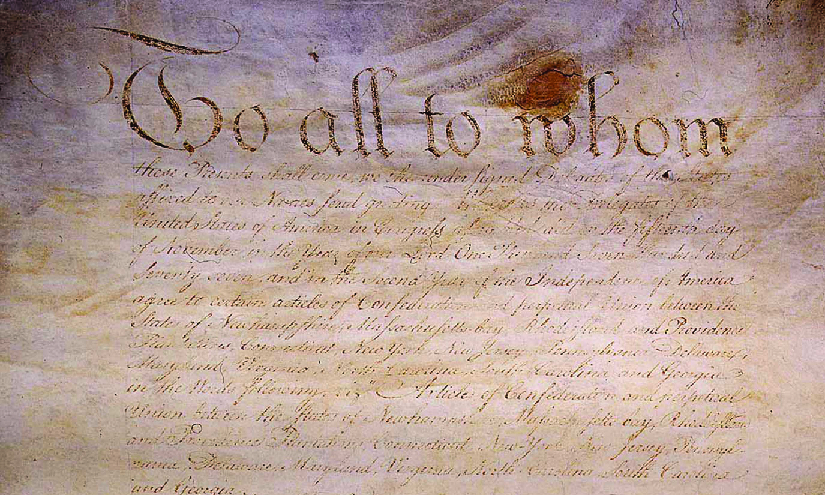 To all to whom
these Presents shall come, we the under signed Delegates of the States
affixed to our Names send greeting. Whereas the Delegates of the
United States of America in Congress assembled did on the fifteenth day
of November in the Year of our Lord One Thousand Seven Hundred and
Seventy seven, and in the Second Year of the Independence of America
agree to certain articles of Confederation and perpetual Union between the
States of Newhampshire, Massachusetts-bay, Rhodeisland and Providence
Plantations, Connecticut, New York, New Jersey, Pennsylvania, Delaware,
Maryland, Virginia, North Carolina, South Carolina and Georgia
in the Words following, viz. "Articles of Confederation and perpetual
Union between the States of Newhampshire, Massachusetts-bay, Rhodeisland
and Providence Plantations, Connecticut, New York, New Jersey, Pennsyl-
vania, Delaware, Maryland, Virginia, North Carolina, South Carolina
and Georgia.